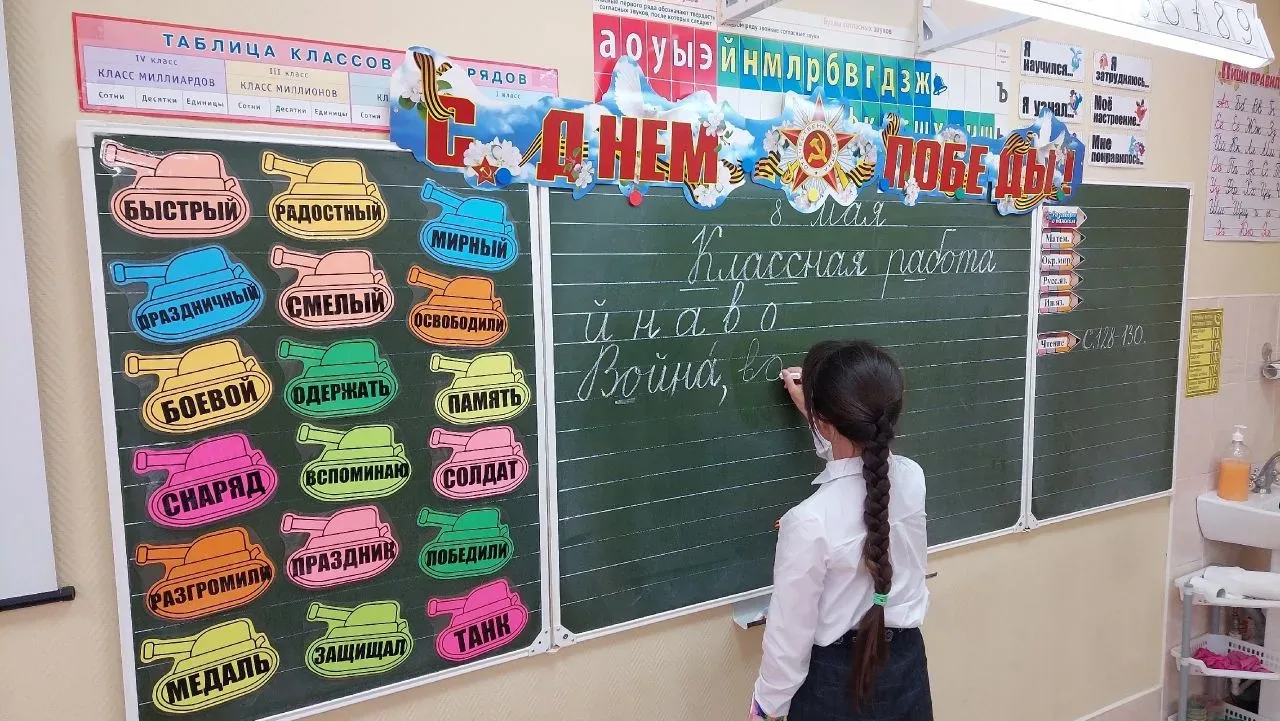 ТАБЛИЦА КЛАССОВ РЯДОВ
IV класс
КЛАСС МИЛЛИАРДОВ
Сотни Десятки Единицы
III класс
КЛАСС МИЛЛИОНОВ
Сотни Десятки Единицы
I класс
Сотни
согласных звуков, после которых следуют
а о у ы э й н м л р б в г д з ж
Ъ
С ДНЕМ ПОБЕДЫ!
Я научился...
Я затрудняюсь...
Я узнал...
Моё настроение...
Мне понравилось...
БЫСТРЫЙ РАДОСТНЫЙ МИРНЫЙ
ПРАЗДНИЧНЫЙ СМЕЛЫЙ ОСВОБОДИЛИ
БОЕВОЙ ОДЕРЖАТЬ ПАМЯТЬ
СНАРЯД ВСПОМИНАЮ СОЛДАТ
РАЗГРОМИЛИ ПРАЗДНИК ПОБЕДИЛИ
МЕДАЛЬ ЗАЩИЩАЛ ТАНК
8 мая
Классная работа
й н а в о
Война, во
Матем.
Окр.мир
Русс.яз.
Ин.яз.
Чтение С.128-130.